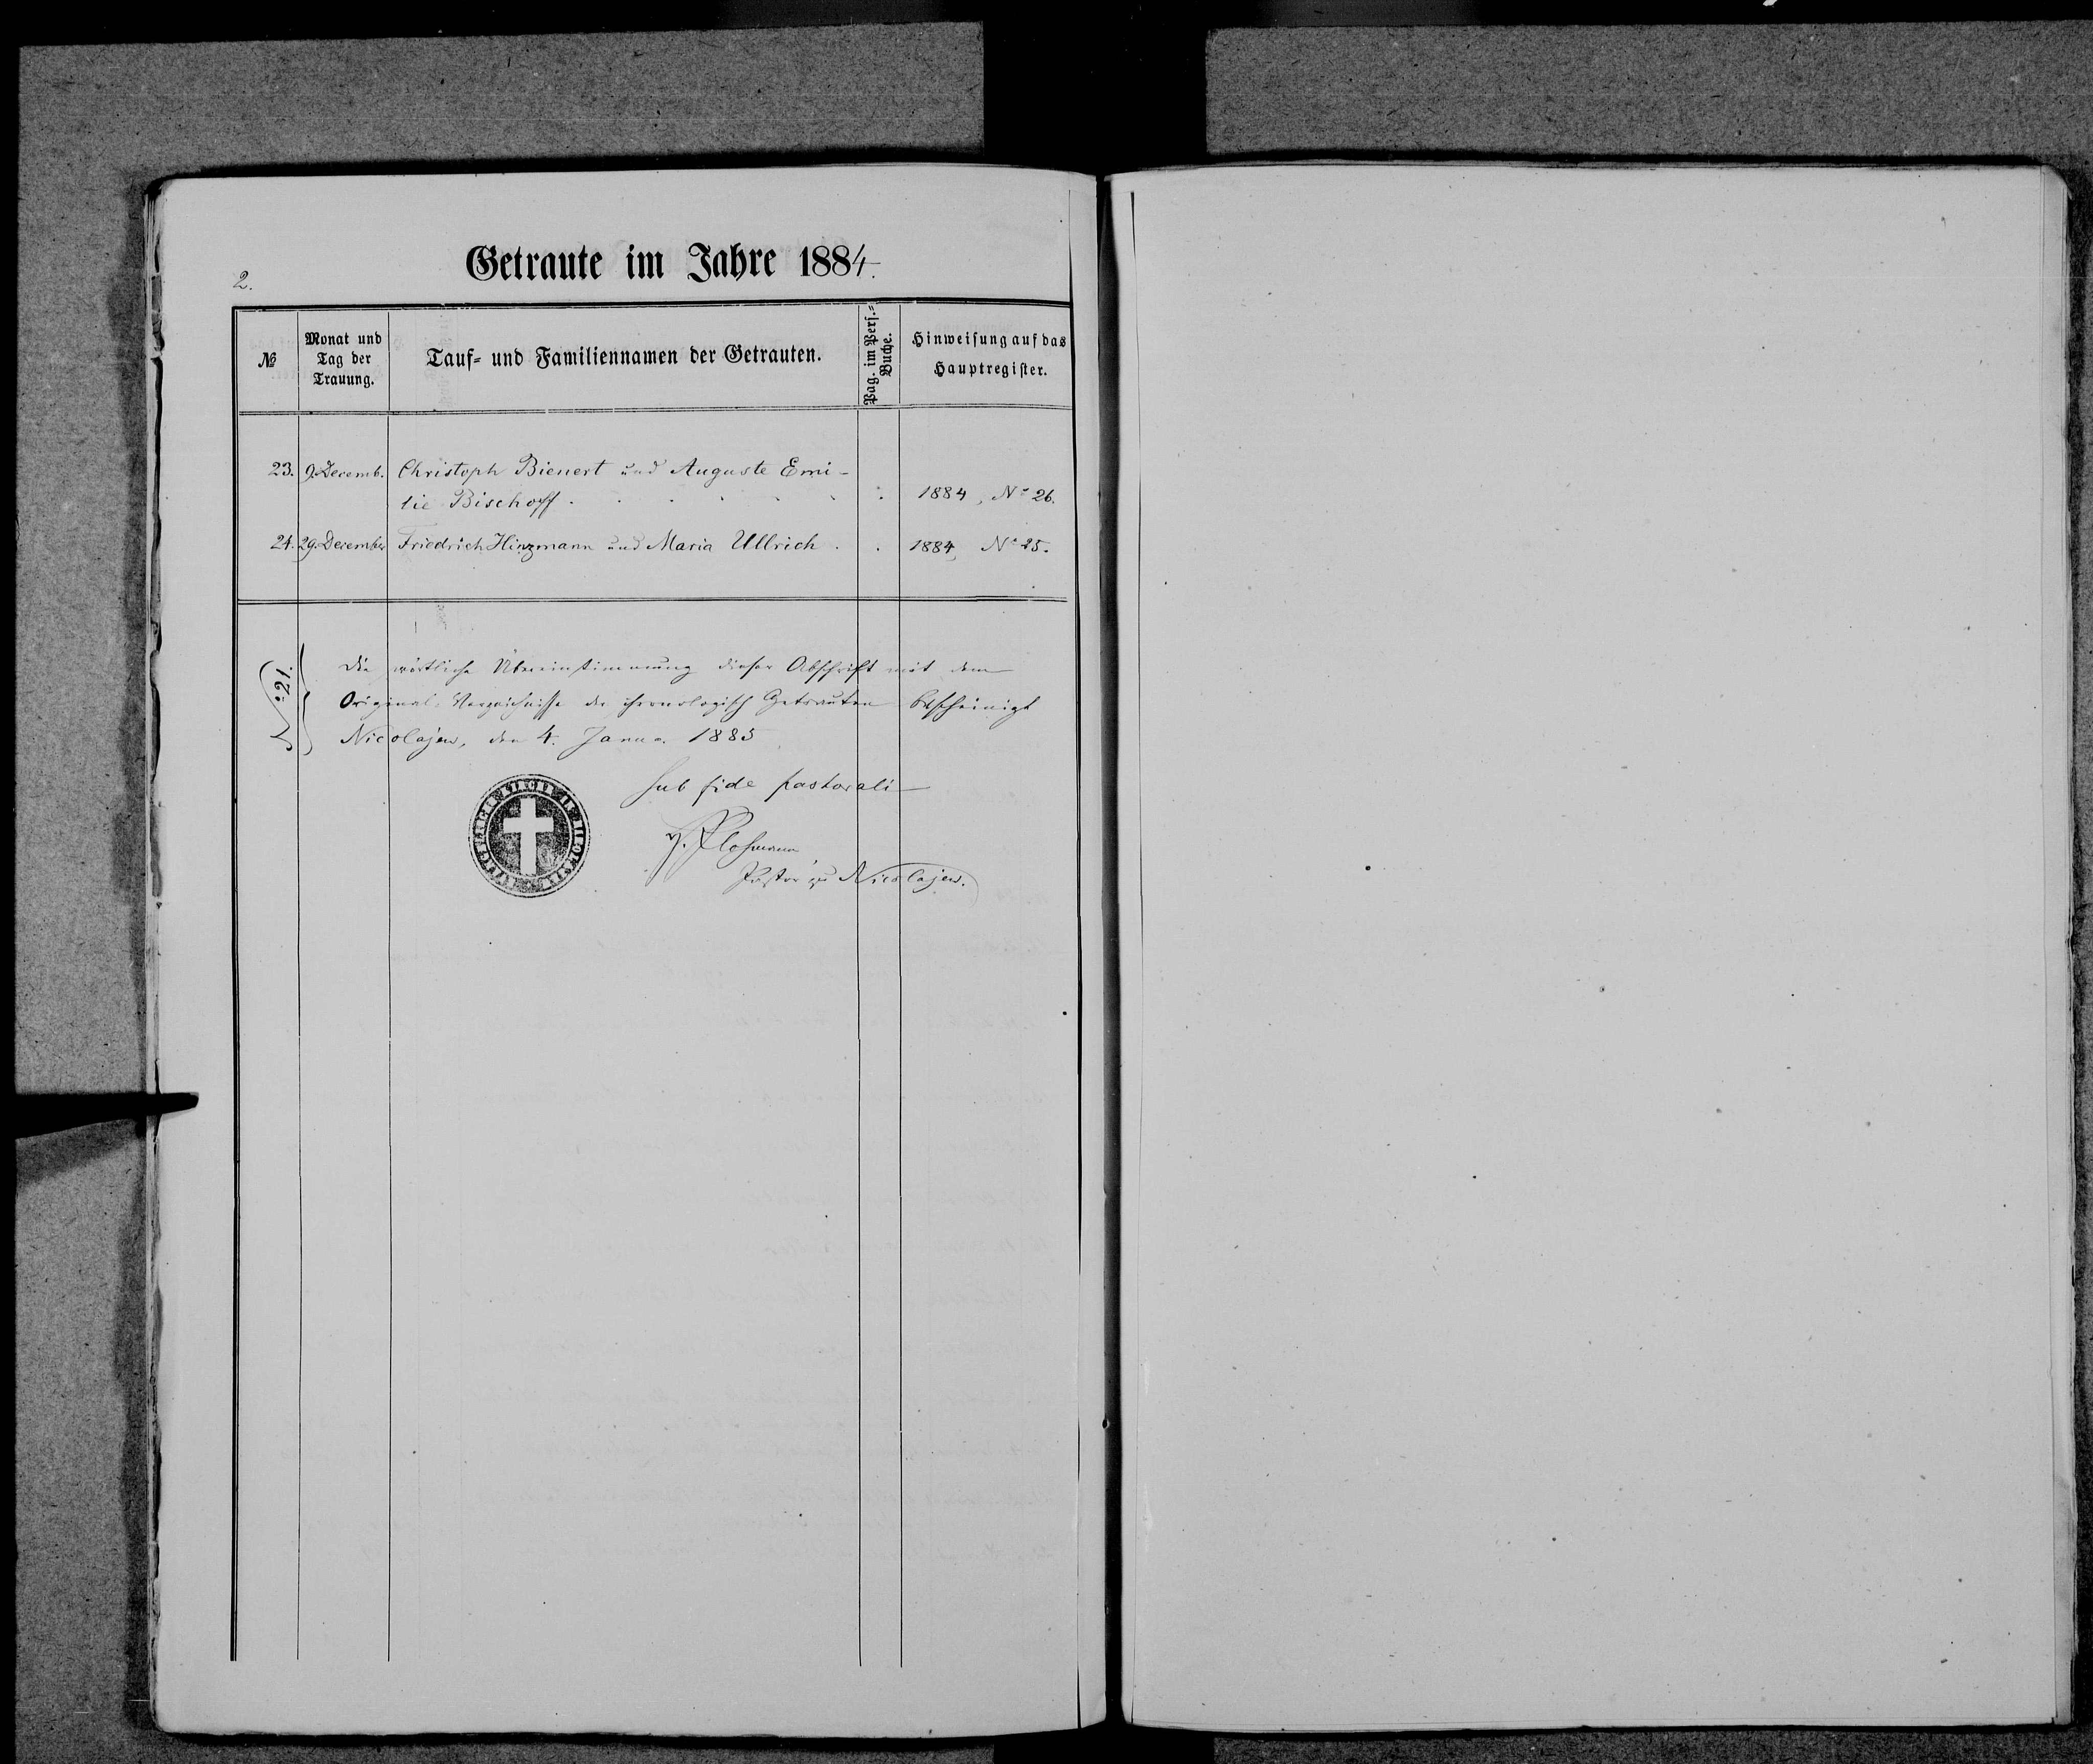 2.
Getraute im Jahre 1884.
№
Monat und
Tag der
Trauung.
Tauf- und Familiennamen der Getrauten.
Pag. im Pers.-
Buche.
Hinweisung auf das
Hauptregister.
23. 9. Decemb. Christoph Bienert und Auguste Emi-
lie Bischoff . . . . . . . 1884, No 26.
24. 29. December Friedrich Hinzmann und Maria Ullrich . . 1884, No 25.
No 21.
Die wörtliche Übereinstimmung dieser Abschrift mit dem
Original-Verzeichnisse der chronologisch Getrauten bescheinigt
Nicolajew, den 4. Janua. 1885
sub fide pastorali
Pastor zu Nicolajew.